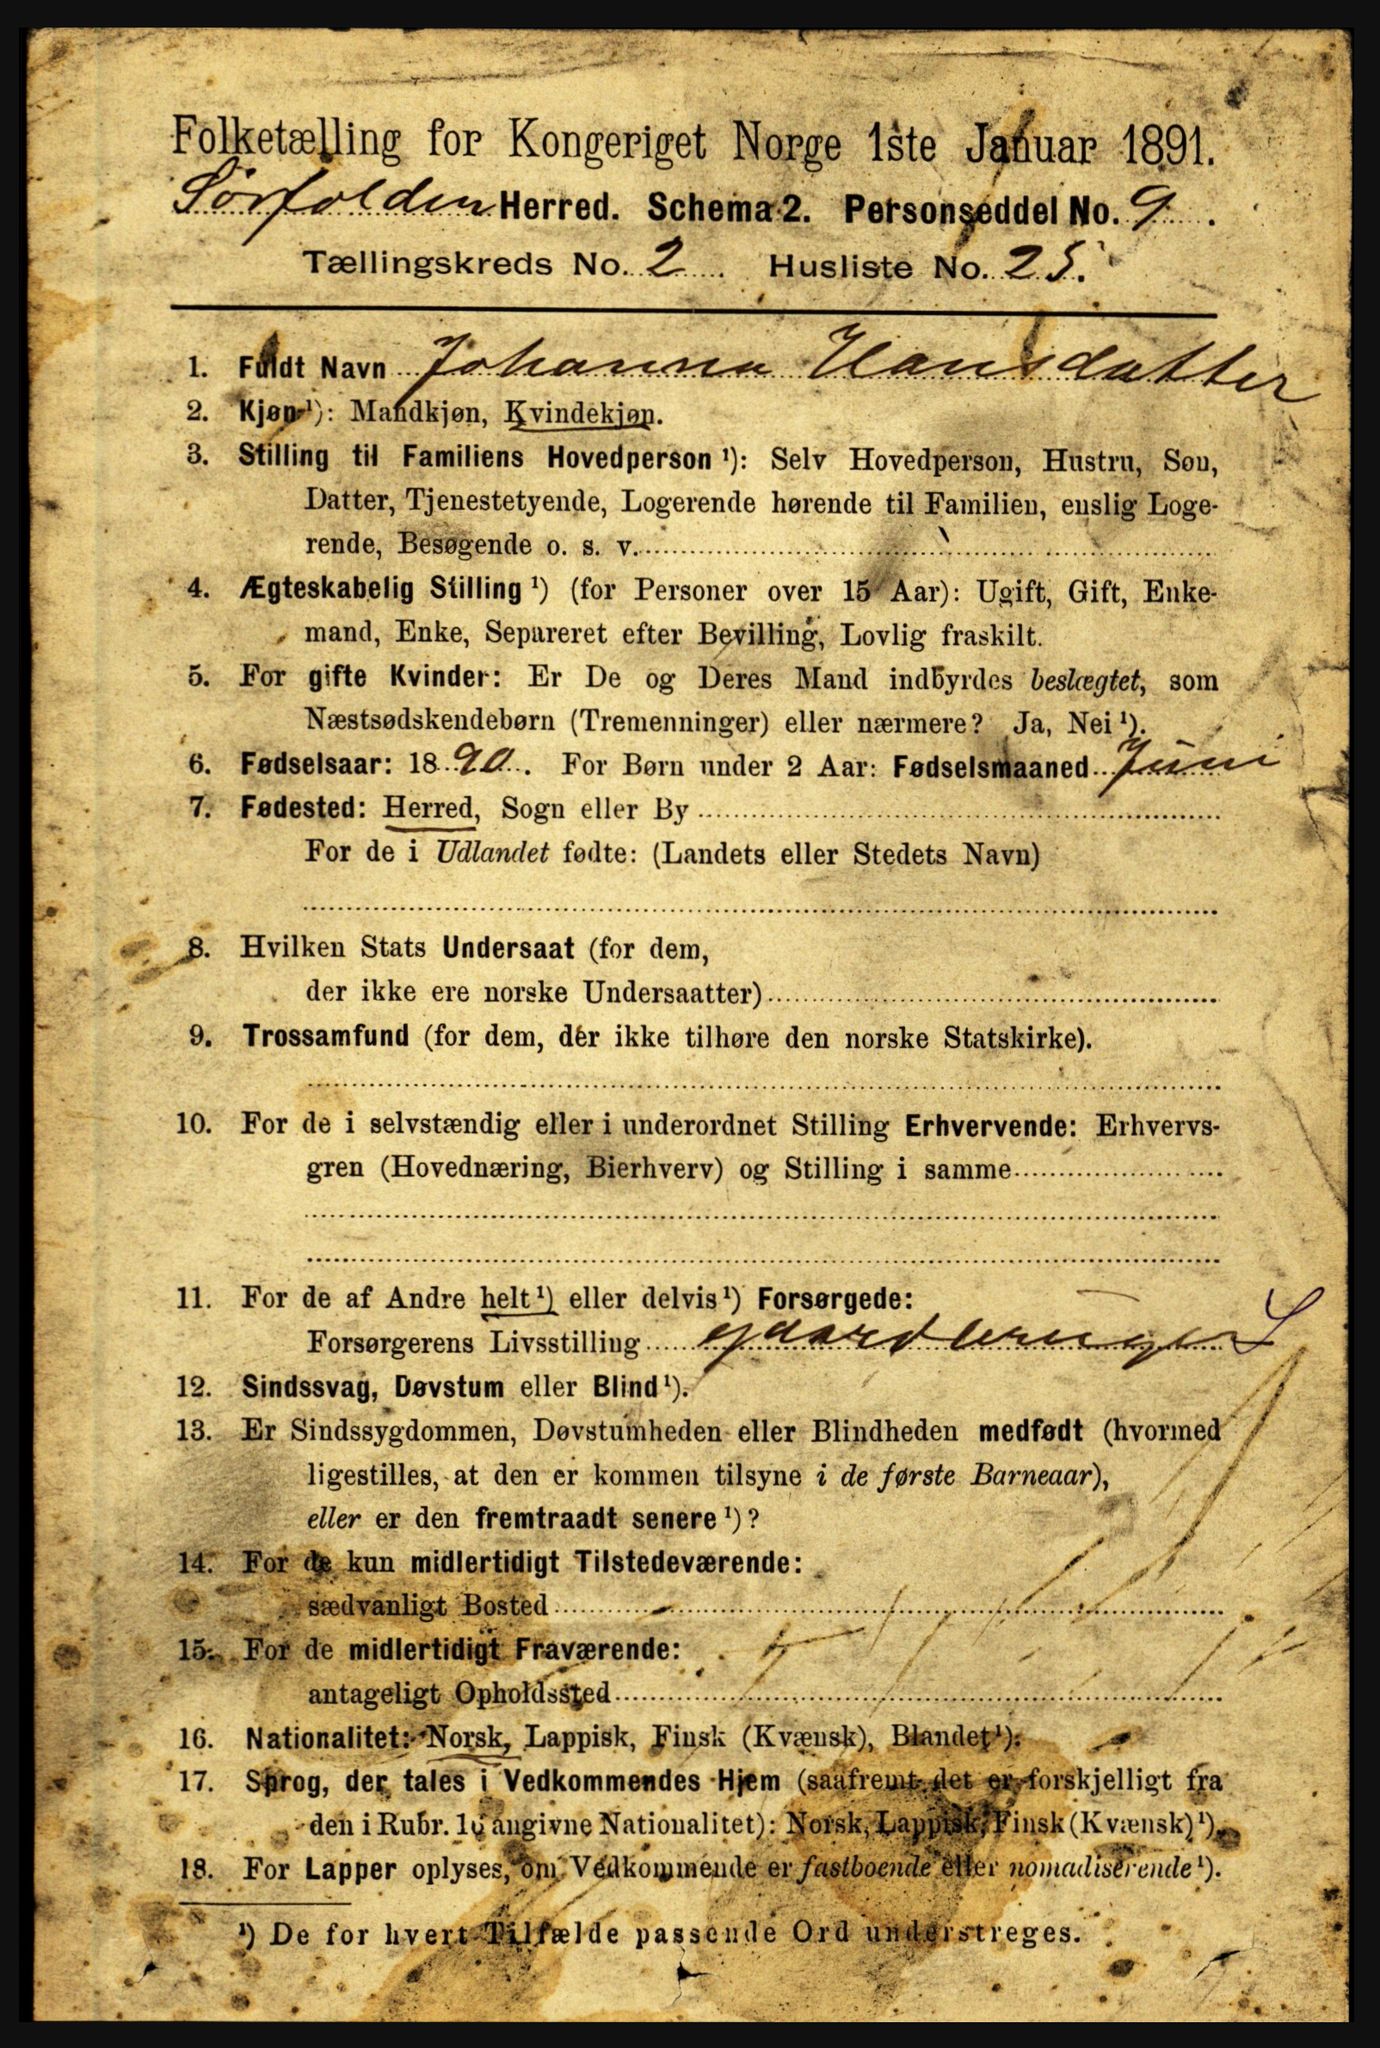 Folketælling for Kongeriget Norge 1ste Januar 1891.
Sørfolden Herred. Schema 2. Personseddel No. 9.
Tællingskreds No. 2 Husliste No. 25.
1. Fuldt Navn Johanna Hansdatter
2. Kjøn¹): Mandkjøn, Kvindekjøn.
3. Stilling til Familiens Hovedperson¹): Selv Hovedperson, Hustru, Søn,
Datter, Tjenestetyende, Logerende hørende til Familien, enslig Loge-
rende, Besøgende o. s. v.
4. Ægteskabelig Stilling¹) (for Personer over 15 Aar): Ugift, Gift, Enke-
mand, Enke, Separeret efter Bevilling, Lovlig fraskilt.
5. For gifte Kvinder: Er De og Deres Mand indbyrdes beslægtet, som
Næstsødskendebørn (Tremenninger) eller nærmere? Ja, Nei¹).
6. Fødselsaar: 1890. For Børn under 2 Aar: Fødselsmaaned Juni
7. Fødested: Herred, Sogn eller By
For de i Udlandet fødte: (Landets eller Stedets Navn)
8. Hvilken Stats Undersaat (for dem,
der ikke ere norske Undersaatter)
9. Trossamfund (for dem, der ikke tilhøre den norske Statskirke).
10. For de i selvstændig eller i underordnet Stilling Erhvervende: Erhvervs-
gren (Hovednæring, Bierhverv) og Stilling i samme
11. For de af Andre helt¹) eller delvis¹) Forsørgede:
Forsørgerens Livsstilling gaardbruger S
12. Sindssvag, Døvstum eller Blind¹).
13. Er Sindssygdommen, Døvstumheden eller Blindheden medfødt (hvormed
ligestilles, at den er kommen tilsyne i de første Barneaar),
eller er den fremtraadt senere¹)?
14. For de kun midlertidigt Tilstedeværende:
sædvanligt Bosted
15. For de midlertidigt Fraværende:
antageligt Opholdssted
16. Nationalitet: Norsk, Lappisk, Finsk (Kvænsk), Blandet¹).
17. Sprog, der tales i Vedkommendes Hjem (saafremt det er forskjelligt fra
den i Rubr. 16 angivne Nationalitet): Norsk, Lappisk, Finsk (Kvænsk)¹).
18. For Lapper oplyses, om Vedkommende er fastboende eller nomadiserende¹).
¹) De for hvert Tilfælde passende Ord understreges.